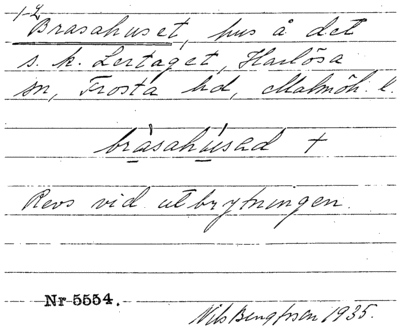 1-2
Brasahuset, hus å det
s. k. Lertaget, Harlösa
sn, Frosta hd, Malmöh. l.
bràsahúsad +
Revs vid utbrytningen.
Nr 5554.
Nils Bengtsson 1935.